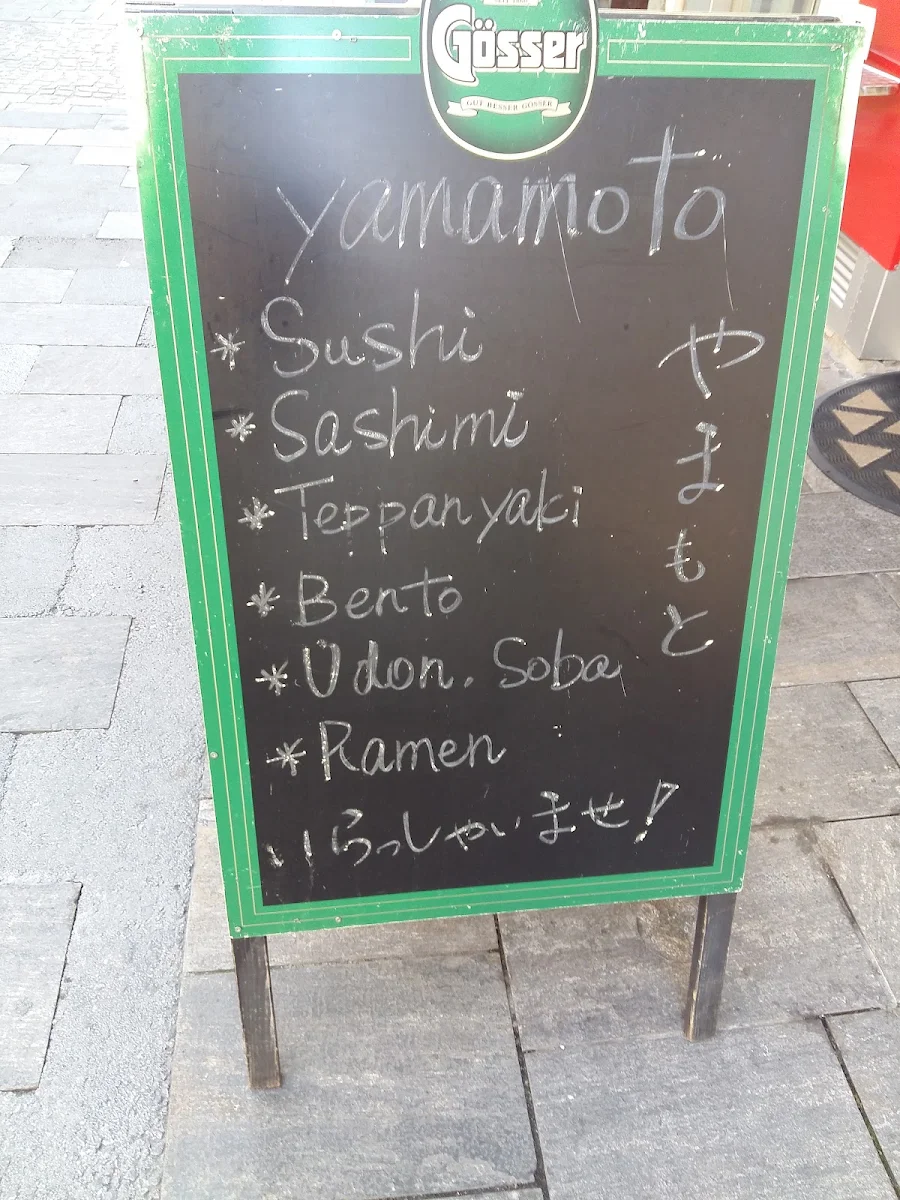 Gösser
GUT BESSER GÖSSER
yamamoto
* Sushi
* Sashimi
* Teppanyaki
* Bento
* Udon. Soba
* Ramen
やまもと
いらっしゃいませ!